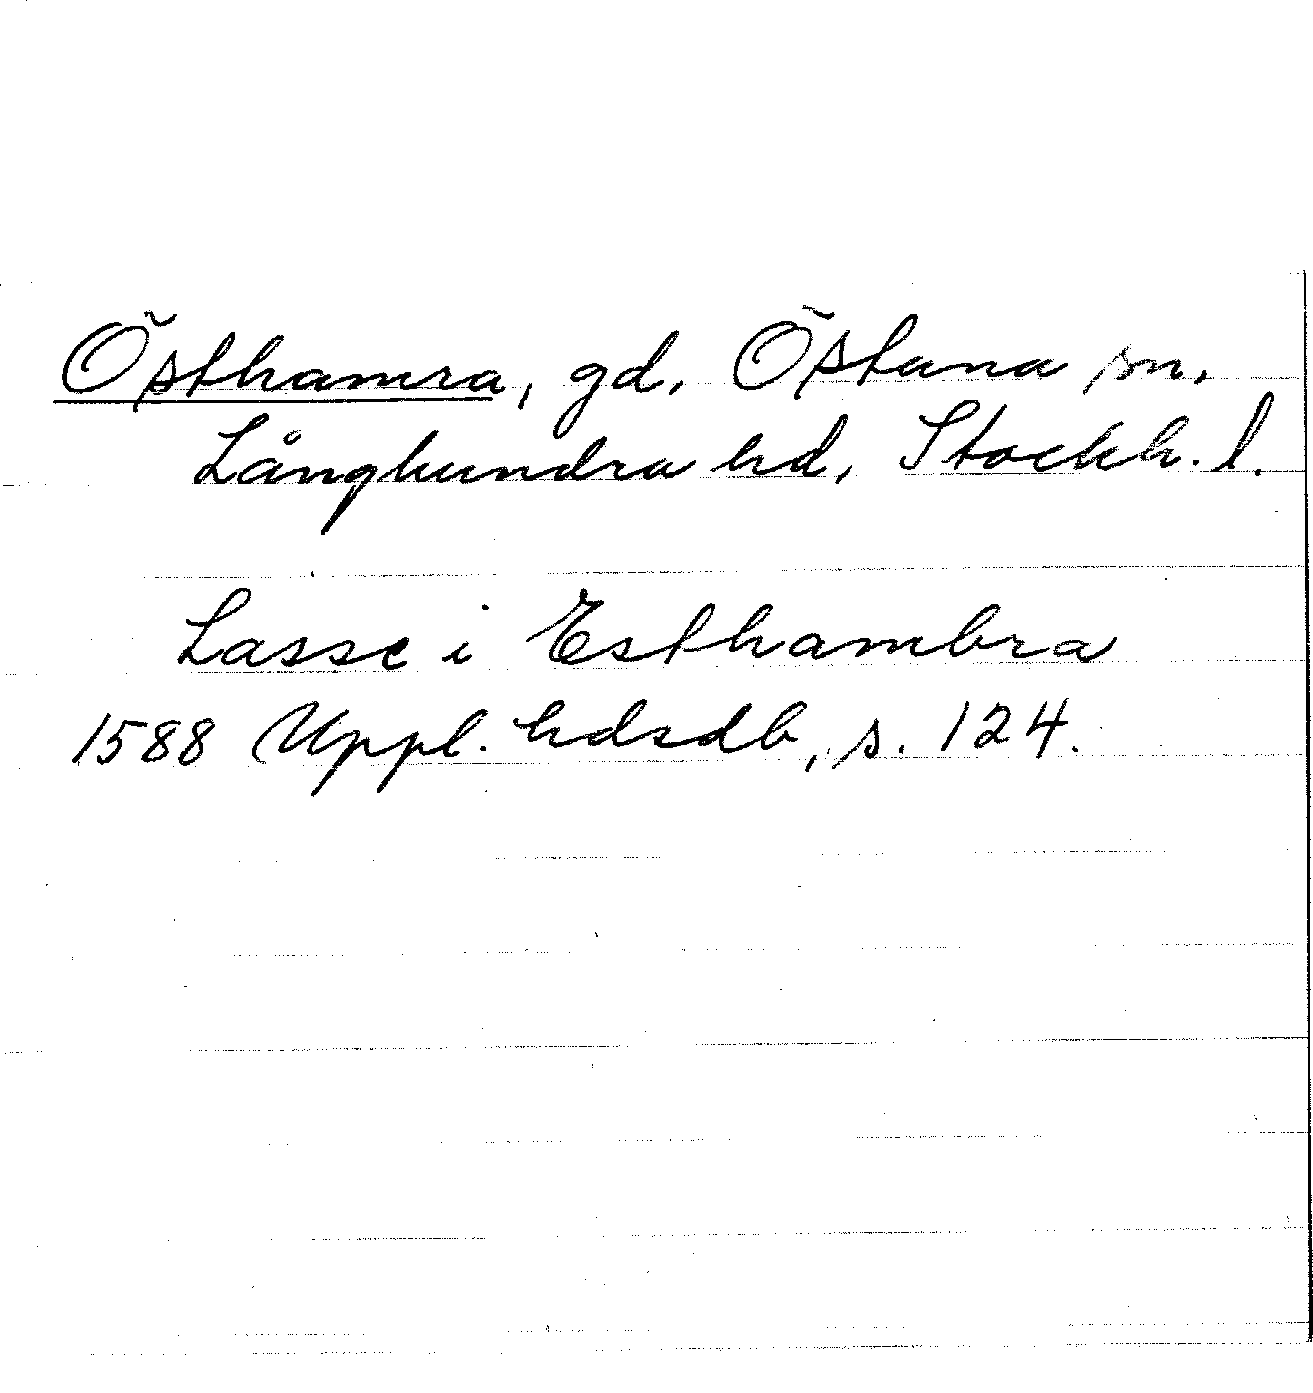 Östhamra, gd, Östuna sn,
Långhundra hd, Stockh. l.
Lasse i Esthambra
1588 Uppl. hdsdb, s. 124.